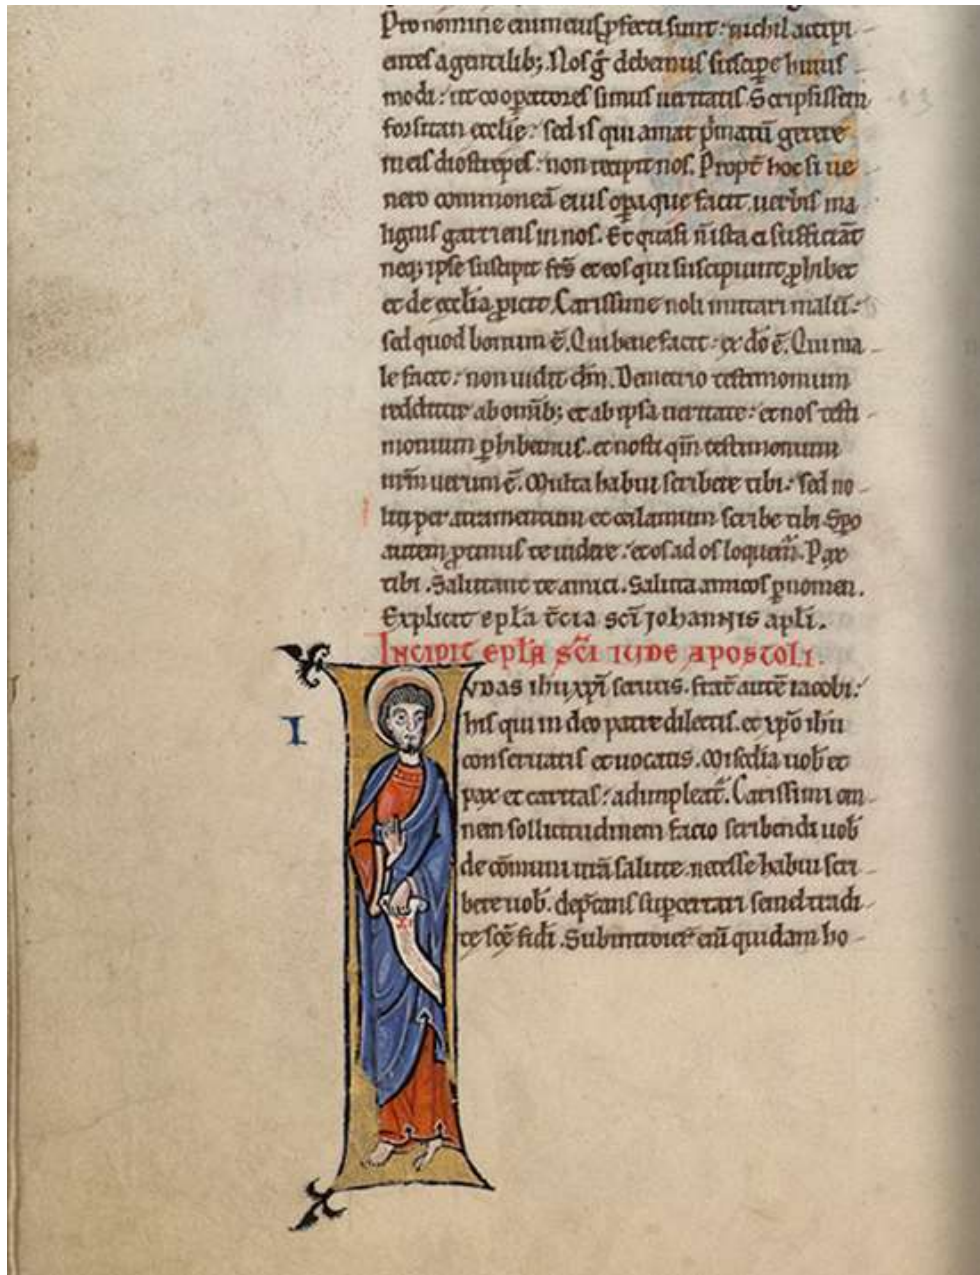 Pro nomine enim eius ꝓfecti sunt: nichil accipi-
entes a gentilib; Nos g̃ debemus suscipe huius-
modi: ut cooperatores simus ueritatis. Scripsissem
forsitan ecclie: sed is qui amat p̃matũ gerere
in eis diostrepes: non recipit nos. Propt̃ hoc si ue-
nero commoneã eius opa que facit. uerbis ma-
lignis garriens in nos. Et quasi ñ ista ei sufficiãt
neq; ipse suscipit fr̃s et eos qui suscipiunt ꝓhibet
et de ecclia ꝓicit. Carissime noli imitari malũ:
sed quod bonum ẽ. Qui bene facit: ex dõ ẽ. Qui ma-
le facit: non uidit dm̃. Demetrio testimonium
redditur ab omib; et ab ipsa ueritate: et nos testi-
monium ꝑhibemus. et nosti qm̃ testimonium
nr̃m uerum ẽ. Multa habui scribere tibi: sed no-
lui per atramentum et calamum scribe tibi. Spo
autem ꝓtinus te uidere: et os ad os loquem̃. Pax
tibi. Salutant te amici. Saluta amicos ꝑ nomen.
Explicit epl̃a t̃cia sc̃i johannis apl̃i.
Incipit epl̃a sc̃i iude apostoli.
I
vdas ihu xp̃i seruus. frat̃ autẽ iacobi:
his qui in deo patre dilectis. et xp̃o ihu
conseruatis et uocatis. Misedia uob̃ et
pax et caritas: adimpleat̃. Carissimi om-
nem sollicitudinem facio scribendi uob̃
de cõmuni ur̃a salute. necesse habui scri-
bere uob̃. dep̃cans supcertari semel tradi-
te sce fidi. Subintroier̃ eñi quidam ho-